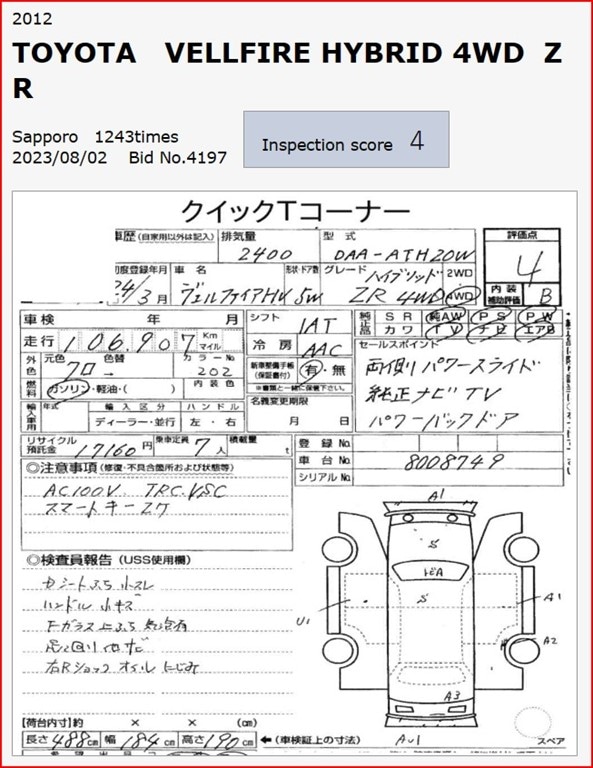 2012
TOYOTA VELLFIRE HYBRID 4WD Z
R
Sapporo 1243times
2023/08/02 Bid No.4197
Inspection score 4
クイックTコーナー
車歴 (自家用以外は記入) 排気量 2400 型式 DAA-ATH20W
評価点 4
初度登録年月 24/3月 車名 ヴェルファイアHV 形状・ドア数 5W グレード ハイブリッド ZR 4WD 2WD 4WD
内装補助評価 B
車検 年 月
シフト IAT
純正品 SR 純AW PS PW
カワ TV ナビ エアB
走行 106,907 Km マイル
冷房 AAC
セールスポイント
両側パワースライド
純正ナビTV
パワーバックドア
外色 元色 クロ 色替 → カラーNo 202
新車整備手帳 (保証書付) 有・無
※書類と一緒に保管して下さい。
燃料 ガソリン・軽油・( ) 内装色
名義変更期限 月 日
輸入車用 年式 輸入区分 ディーラー・並行 ハンドル 左・右
リサイクル預託金 17160円 乗車定員 7人 積載量 t
登録No.
車台No. 8008749
シリアルNo.
◎注意事項 (修復・不具合箇所および状態等)
AC100V TRC.VSC
スマートキー2ケ
◎検査員報告 (USS使用欄)
ハンドル小キズ
右Rショックオイルにじみ
A1
S
S
U1
A1
A2
A3
スペア
【荷台内寸】約 × × (cm)
長さ 488cm 幅 184cm 高さ 190cm ←(車検証上の寸法)